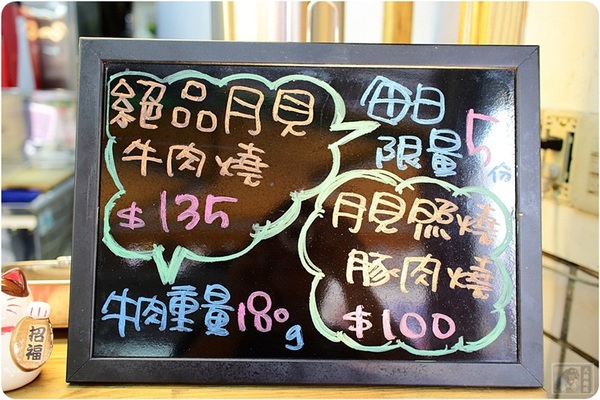 絕品月見
牛肉燒
$135
每日
限量5份
月見照燒
豚肉燒
$100
牛肉重量180g
招福